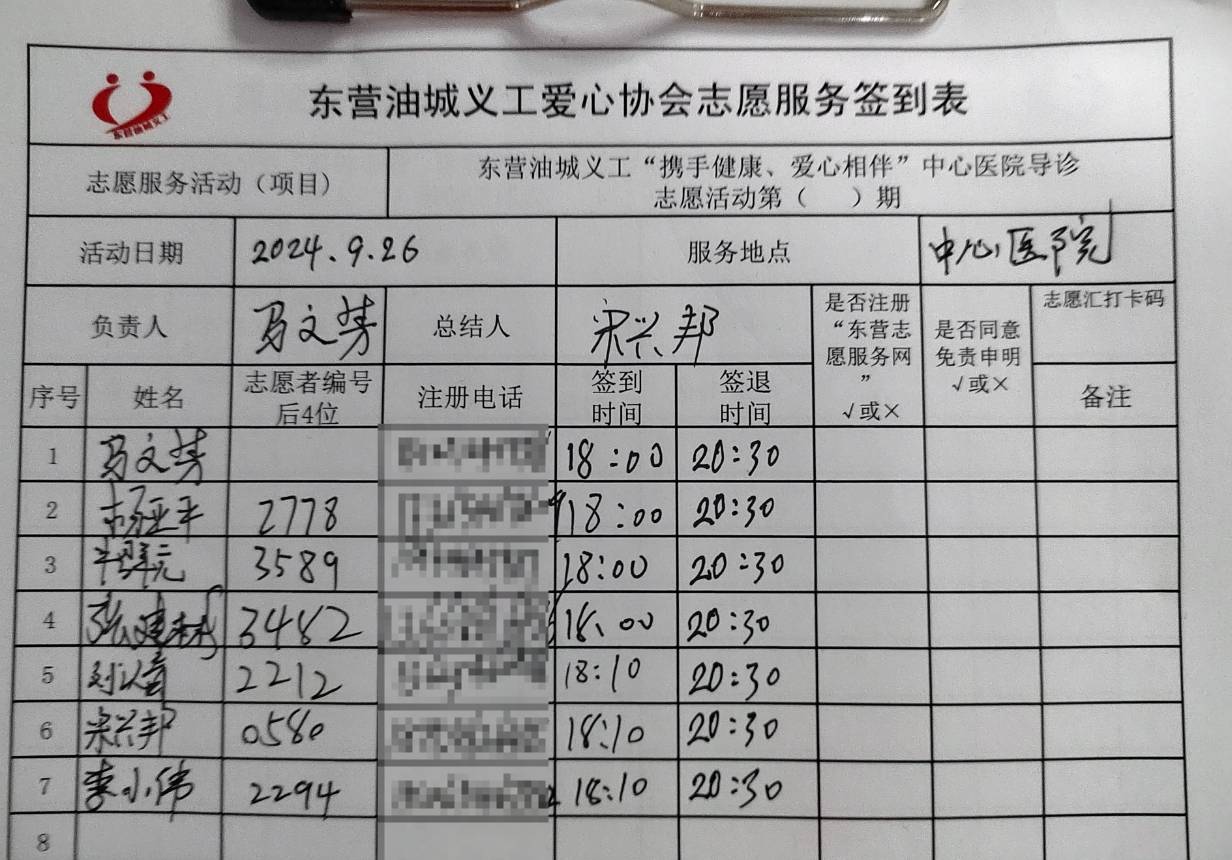 东营油城义工
东营油城义工爱心协会志愿服务签到表
志愿服务活动（项目）
东营油城义工“携手健康、爱心相伴”中心医院导诊
志愿活动第（　）期
活动日期 2024.9.26 服务地点 中心医院
负责人 马文芳 总结人 宋兴邦
是否注册
“东营志
愿服务网
”
√或×
是否同意
免责申明
√或×
志愿汇打卡码
序号 姓名
志愿者编号
后4位
注册电话
签到
时间
签退
时间
备注
1 马文芳 18:00 20:30
2 杨亚平 2778 18:00 20:30
3 3589 18:00 20:30
4 张建林 3482 18:00 20:30
5 2212 18:10 20:30
6 宋兴邦 0580 18:10 20:30
7 李小伟 2294 18:10 20:30
8